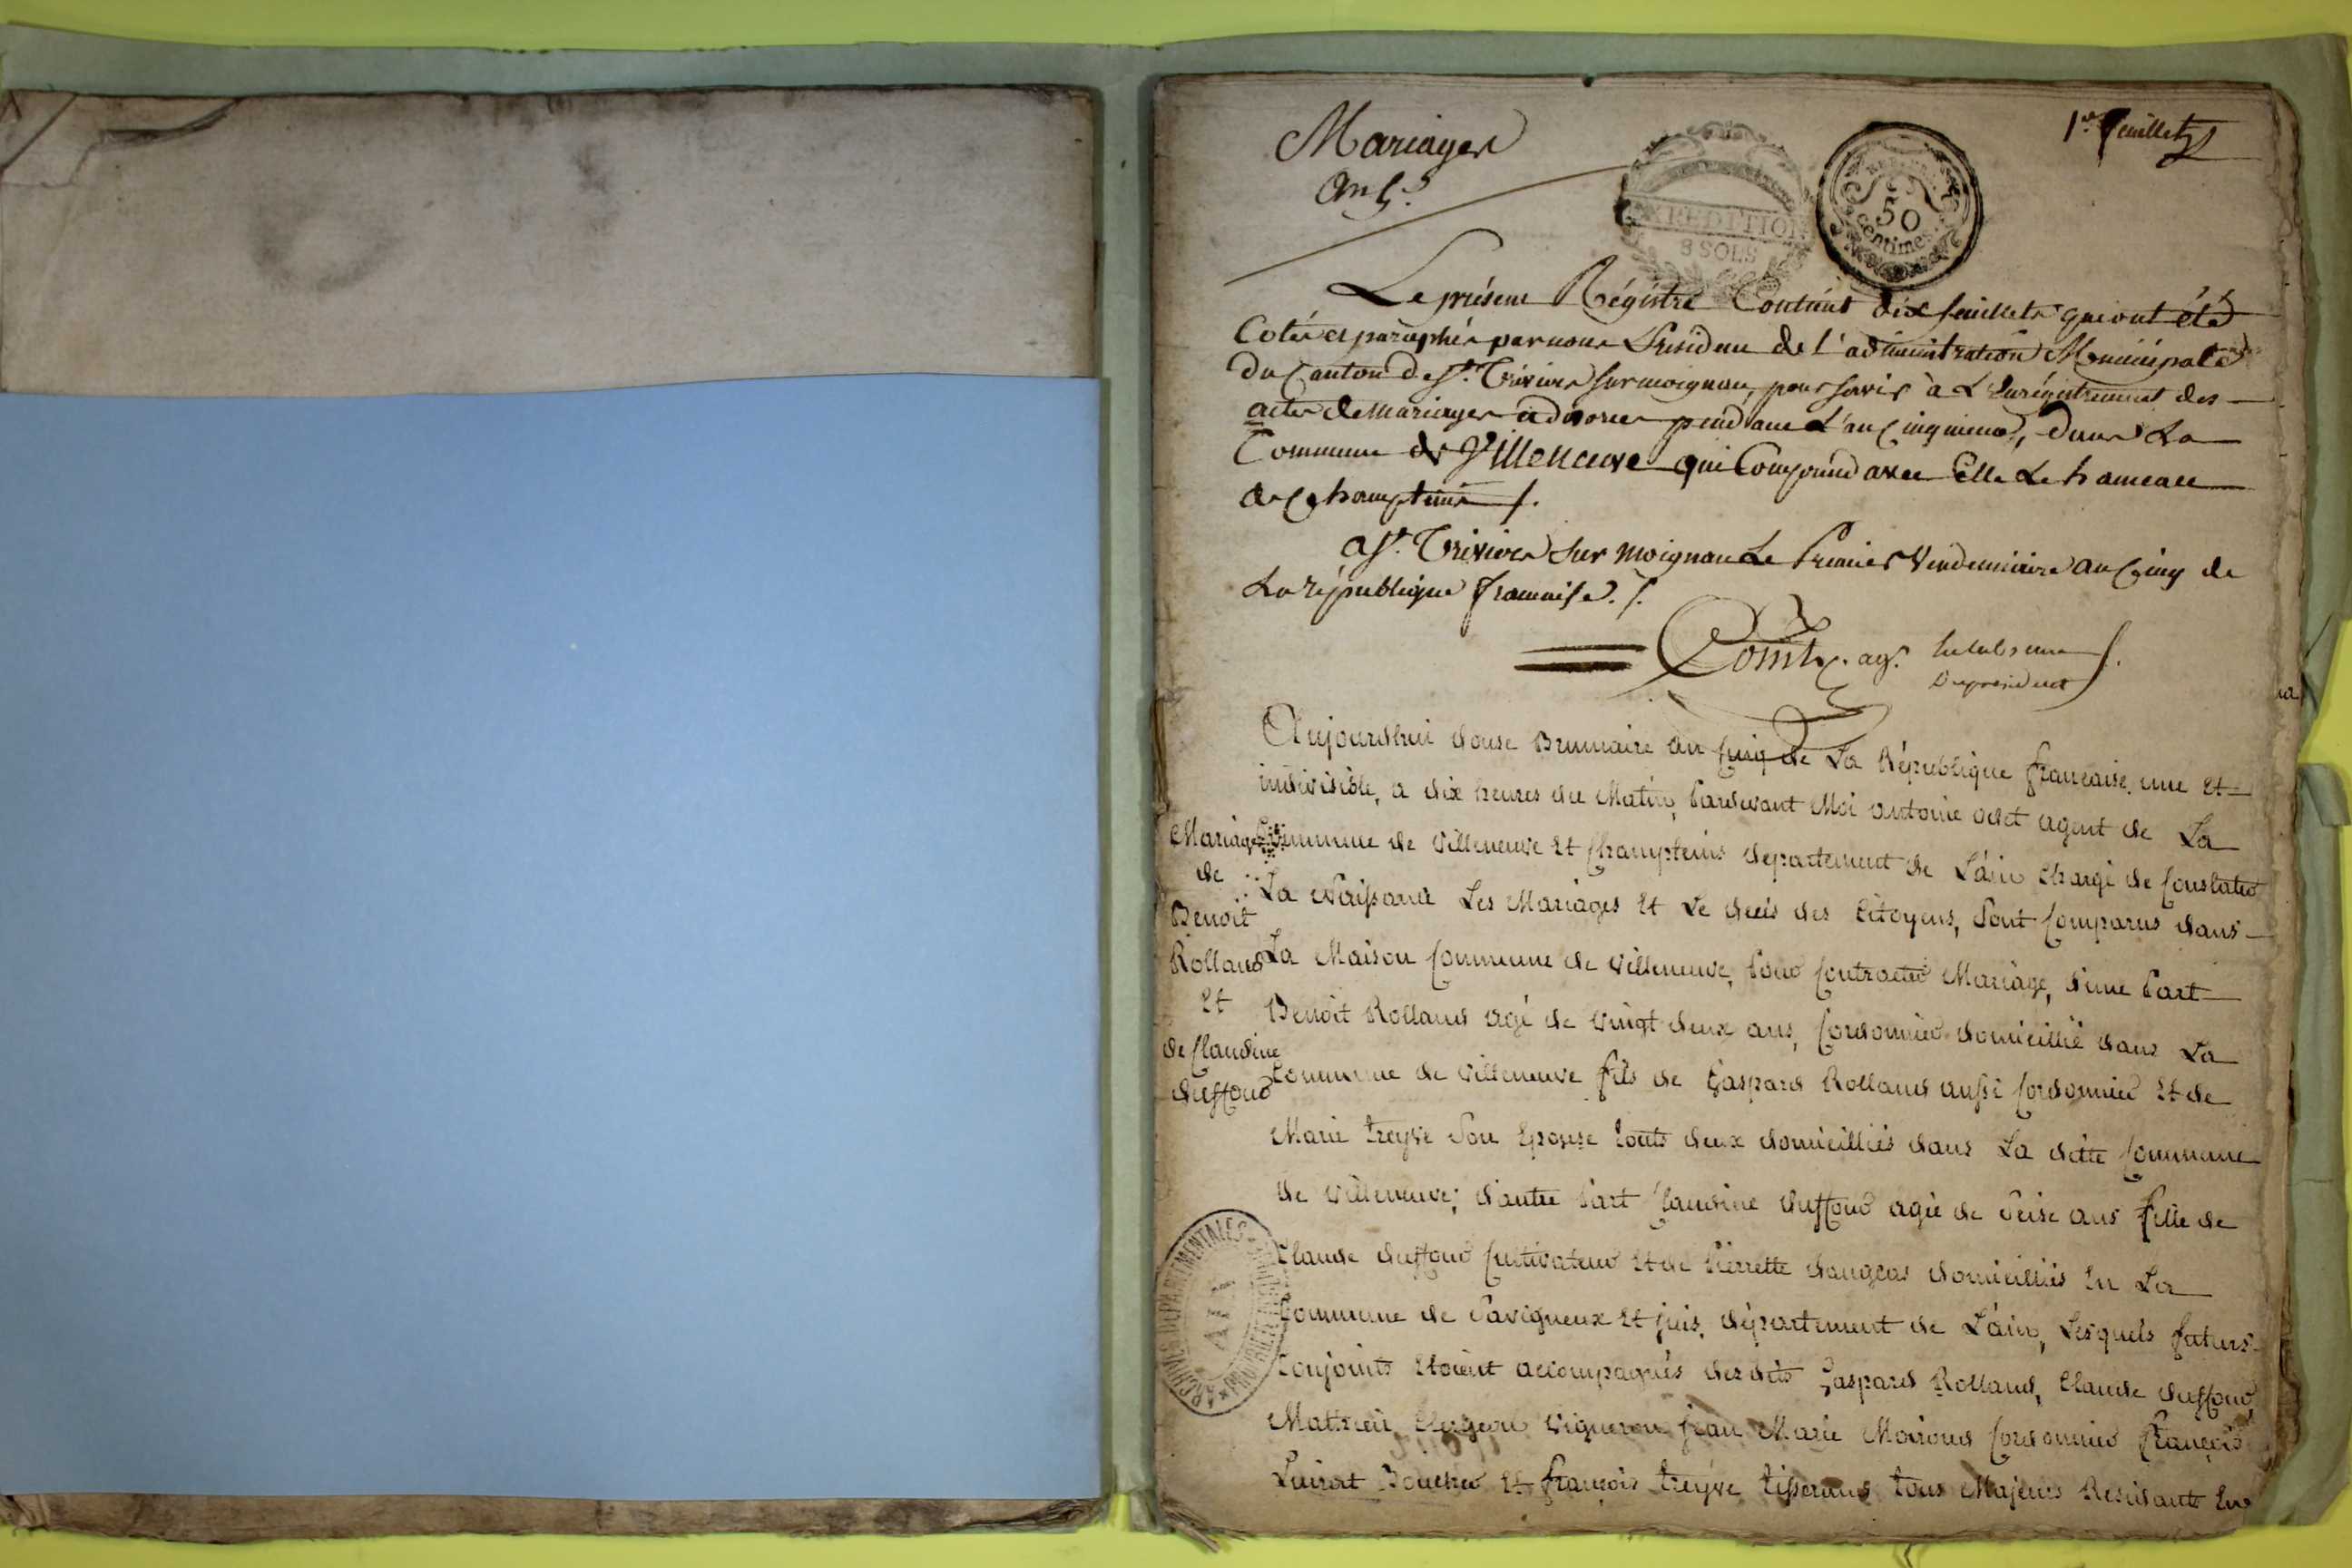 1er feuillet
Mariages
An 5.
EXPEDITION
8 SOLS
50
centimes
Le présent Régistre Contient dix feuillets qui ont été
Cotés et paraphés par nous Président de l'administration Municipale
du Canton de St. Trivier sur moignan, pour servir à L'Enrégistrement des
actes de mariages et divorces pendant L'an Cinquieme, dans La
Commune de Villeneuve qui Comprend avec Elle Le hameau
de Champteins /.
a St. Trivier sur moignan Le Premier Vendemiaire an Cinq de
La république francaise. /.
Comte. ag.
Aujourdhui douse Brumaire an Cinq de La République francaise, une Et
indivisible, a dix heures du Matin, Pardevant Moi antoine odet agent de La
Commune de villeneuve Et Champteins departement de L'ain Chargé de Constater
La Naissance Les Mariages Et Le decés des Citoyens, Sont Comparus dans
La Maison Commune de Villeneuve, Pour Contracter Mariage, d'une Part
Benoit Rolland agé de vingt deux ans, Cordonnier domicillié dans La
Commune de villeneuve fils de Gaspard Rolland aussi Cordonnier Et de
Marie treyve Son Epouse touts deux domicilliés dans La dite Commune
de villeneuve; d'autre Part Claudine duffour agée de Seise ans fille de
Claude duffour Cultivateur Et de Pierrette dangeas domicilliés En La
Commune de Savigneux Et juis, département de L'ain, Lesquels futurs
Conjoints Etoient accompagnés desdits Gaspard Rolland, Claude duffour,
Mathieu vigneron jean Marie Moiroud Cordonnier François
Boucher Et françois treyve tisserand tous Majeurs Residants En
Mariage
de
Benoit
Rolland
Et
de Claudine
duffour
ARCHIVES DEPARTEMENTALES
AIN